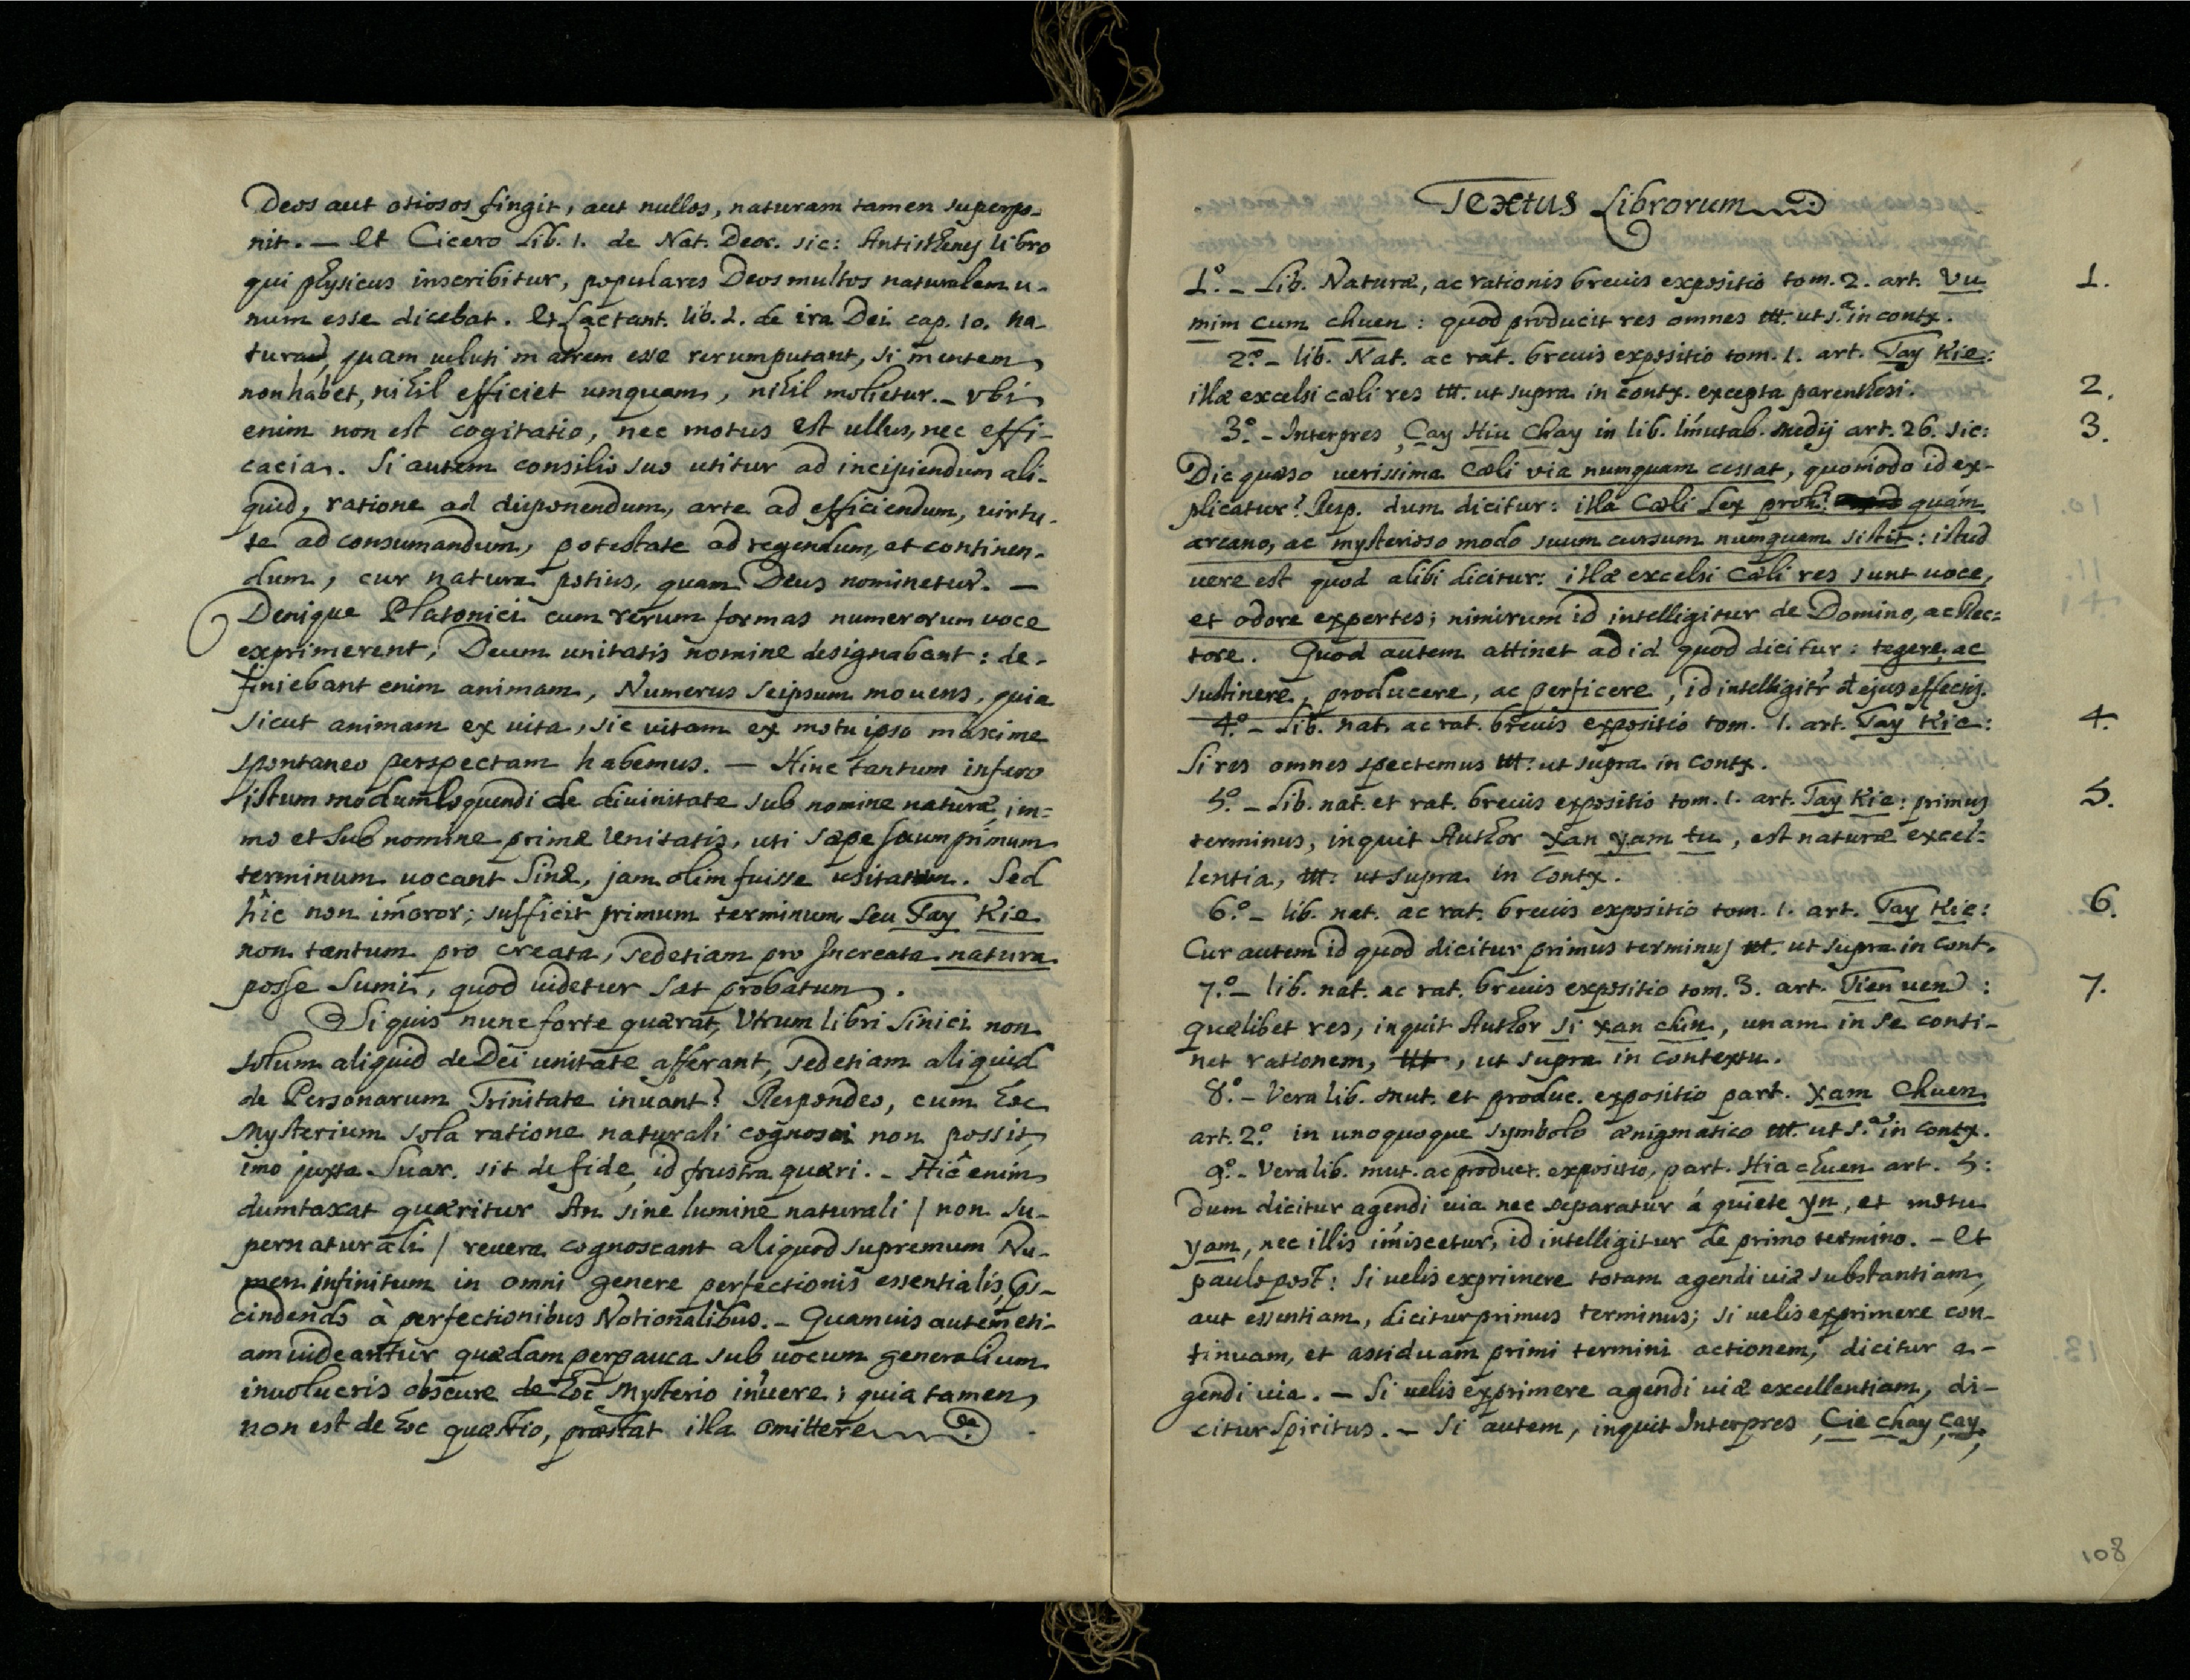 Deos aut otiosos fingit, aut nullos, naturam tamen superpo-
nit. — Et Cicero Lib. 1. de Nat. Deor. sic: Antisthenes libro
qui physicus inscribitur, populares Deos multos naturalem u-
num esse dicebat. Et Lactant. lib. 1. de ira Dei cap. 10. na-
turam, quam veluti matrem esse rerum putant, si mentem
non habet, nihil efficiet umquam, nihil molietur. – Vbi
enim non est cogitatio, nec motus est ullus, nec effi-
cacia. Si autem consilio suo utitur ad incipiendum ali-
quid, ratione ad disponendum, arte ad efficiendum, virtu-
te ad consumandum, potestate ad regendum, et continen-
dum, cur natura potius, quam Deus nominetur. —
Denique Platonici cum rerum formas numerorum voce
exprimerent, Deum unitatis nomine designabant: de-
finiebant enim animam, Numerus seipsum movens, quia
sicut animam ex vita, sic vitam ex motu ipso maxime
spontaneo perspectam habemus. — Hinc tantum infero
istum modum loquendi de divinitate sub nomine naturæ, im=
mo et sub nomine primæ Unitatis, uti sæpe suum primum
terminum vocant Sinæ, jam olim fuisse usitatum. Sed
hîc non im̄oror; sufficit primum terminum seu Tay Kie
non tantum pro creata, sed etiam pro Increata natura
posse sumi, quod videtur sat probatum.
Si quis nunc forte quærat, Utrum libri Sinici non
solum aliquid de Dei unitate afferant, sed etiam aliquid
de Personarum Trinitate innuant? Respondeo, cum hoc
Mysterium sola ratione naturali cognosci non possit,
imo juxta Suar. sit de fide, id frustra quæri. – Hîc enim
dumtaxat quæritur An sine lumine naturali / non su-
pernaturali / revera cognoscant aliquod supremum Nu-
men infinitum in omni genere perfectionis essentialis,
cindendo à perfectionibus Notionalibus. – Quamvis autem eti-
am videantur quædam perpauca sub vocum generalium
involucris obscure de hoc Mysterio innuere; quia tamen
non est de hoc quæstio, præstat illa omittere
Textus Librorum
1º. – Lib. Naturæ, ac rationis brevis expositio tom. 2. art. Vu 1.
mim cum chuen: quod producit res omnes ut s.ª in contx.
2º. – lib. Nat. ac rat. brevis expositio tom. 1. art. Tay Kie:
illæ excelsi cæli res ut supra in contx. excepta parenthesi. 2.
3º. – Interpres Çay Hiu Chay in lib. Im̄utab. Medij art. 26. sic: 3.
Dic quæso verissima Cæli via numquam cessat, quomodo id ex-
plicatur? Resp. dum dicitur: illa Cæli Lex proh! quám
arcano, ac mysterioso modo suum cursum numquam sistit: istud
vere est quod alibi dicitur: illæ excelsi Cæli res sunt voce,
et odore expertes; nimirum id intelligitur de Domino, ac Rec=
tore. Quod autem attinet ad id quod dicitur: tegere, ac
sustinere, producere, ac perficere, id intelligitr̄ ejus effectis.
4º. – Lib. nat. ac rat. brevis expositio tom. 1. art. Tay Kie: 4.
Si res omnes spectemus ut supra in contx.
5º. – Lib. nat. et rat. brevis expositio tom. 1. art. Tay Kie: primus 5.
terminus, inquit Author Xan yam tu, est naturæ excel=
lentia, ut supra in contx.
6º. – lib. nat. ac rat. brevis expositio tom. 1. art. Tay Kie: 6.
Cur autem id quod dicitur primus terminus ut supra in cont.
7º. – lib. nat. ac rat. brevis expositio tom. 3. art. Tien uen: 7.
quælibet res, inquit Author Si Xan chin, unam in se conti-
net rationem, ut supra in contextu.
8º. – Vera lib. mut. et produc. expositio part. Xam Chuen
art. 2º. in unoquoque symbolo ænigmatico ut s.ª in contx.
9º. – Vera lib. mut. ac product. expositio, part. Hia chuen art. 5:
dum dicitur agendi via nec separatur á quiete yn, et motu
yam, nec illis im̄iscetur, id intelligitur de primo termino. – Et
paulo post: Si velis exprimere totam agendi viæ substantiam,
aut essentiam, dicitur primus terminus; si velis exprimere con-
tinuam, et assiduam primi termini actionem, dicitur a-
gendi via. – Si velis exprimere agendi viæ excellentiam, di-
citur Spiritus. – Si autem, inquit Interpres Çie chay çay,
108